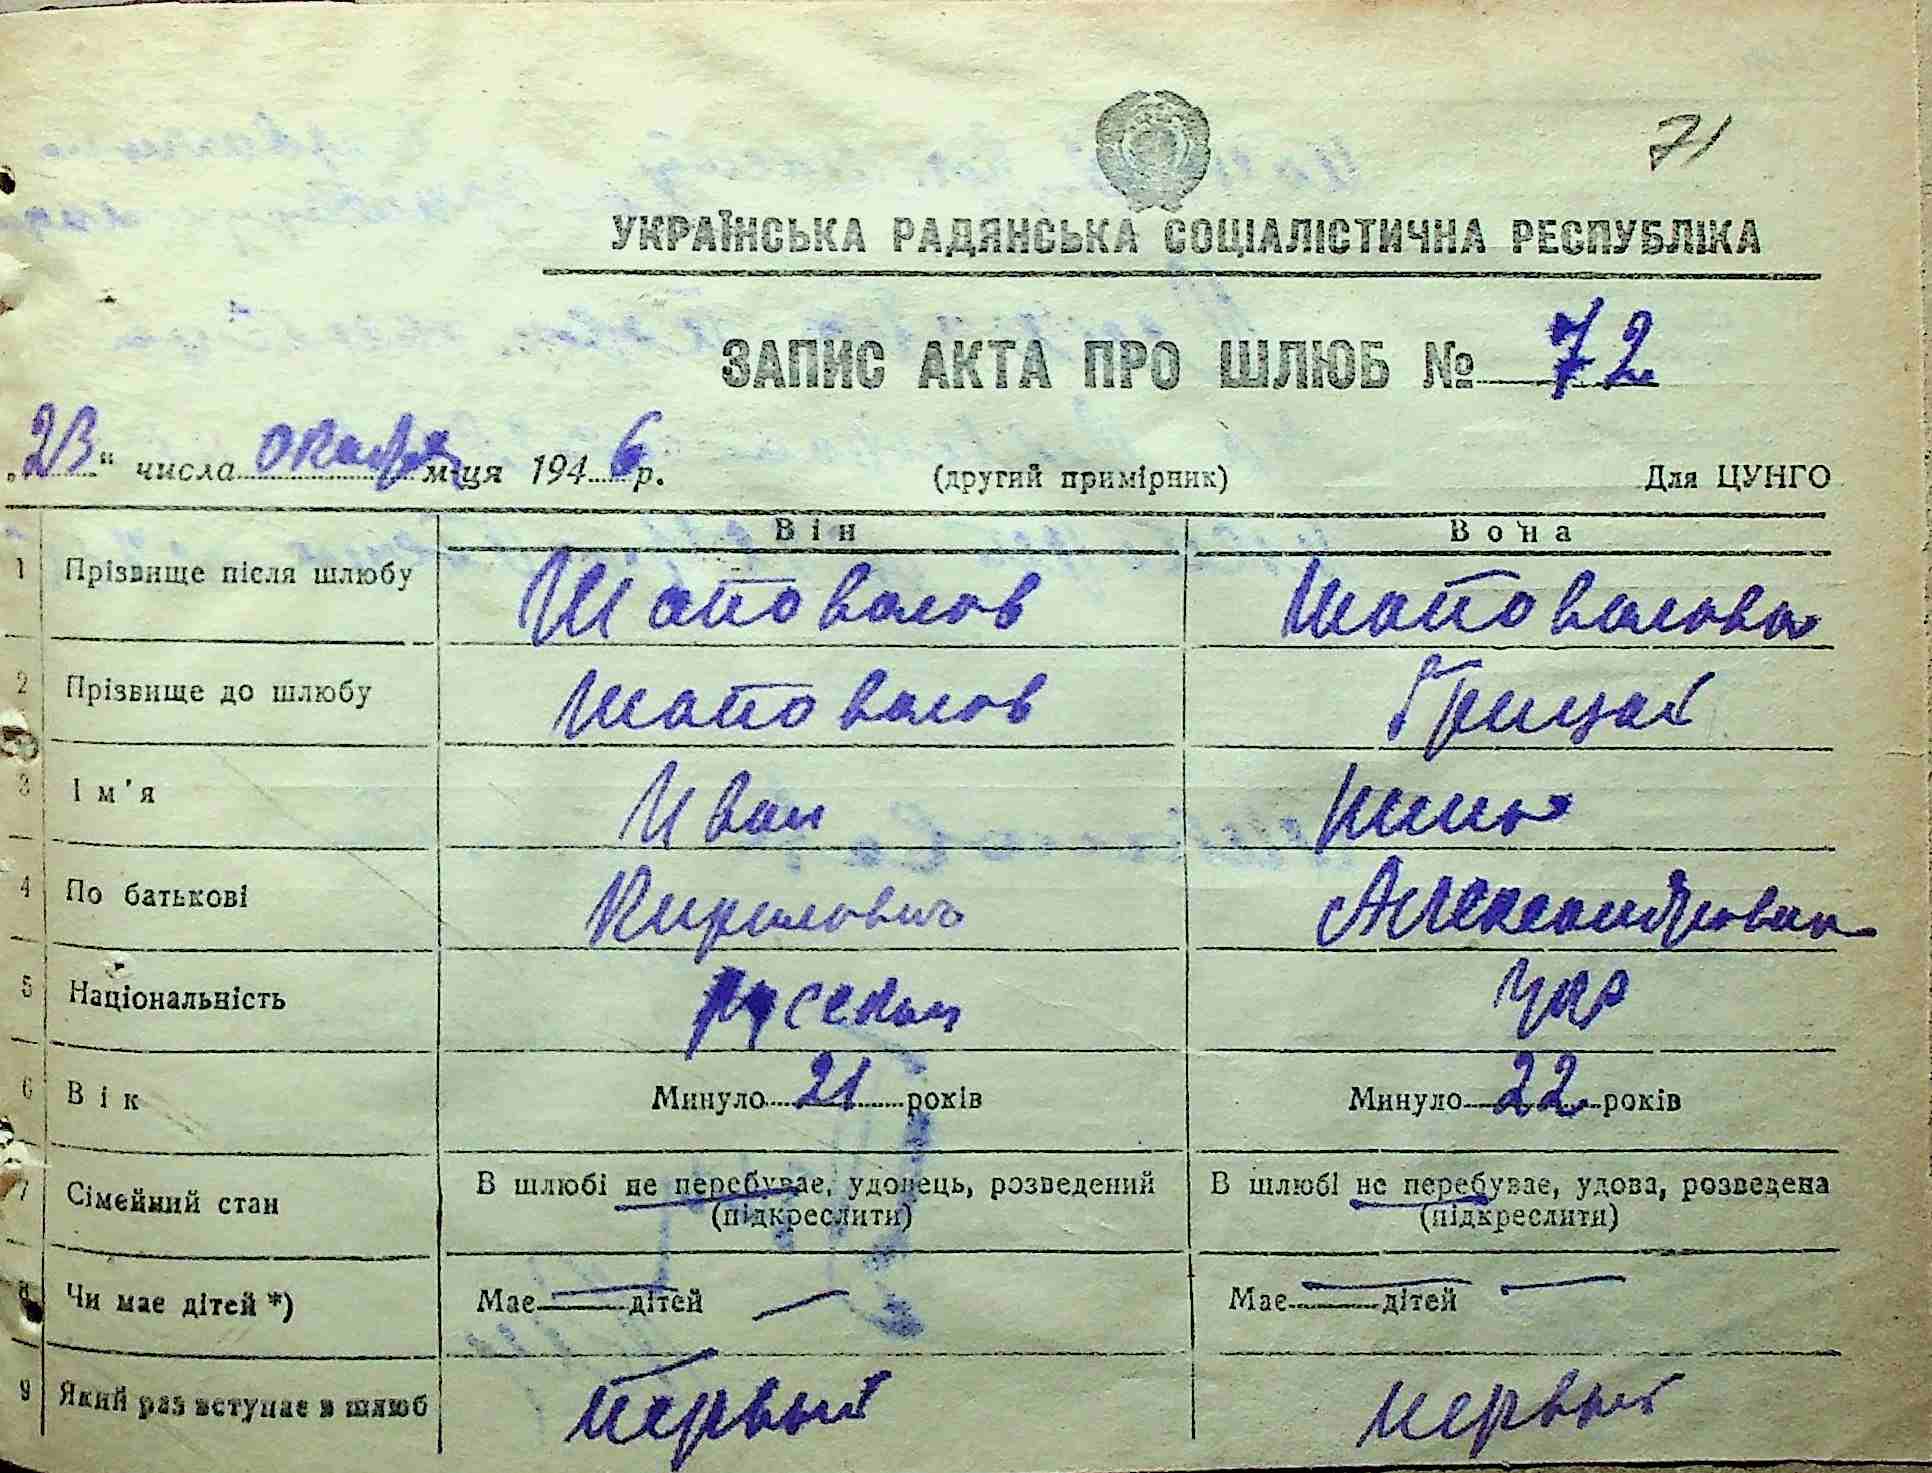 71
УКРАЇНСЬКА РАДЯНСЬКА СОЦІАЛІСТИЧНА РЕСПУБЛІКА
ЗАПИС АКТА ПРО ШЛЮБ № 72
„23“ числа октября м-ця 1946 р. (другий примірник) Для ЦУНГО
Він Вона
1 Прізвище після шлюбу Шаповалов Шаповалова
2 Прізвище до шлюбу Шаповалов Грицай
3 Ім'я Иван Нина
4 По батькові Кирилович Александровна
5 Національність русский укр
6 Вік Минуло 21 років Минуло 22 років
7 Сімейний стан В шлюбі не перебуває, удовець, розведений В шлюбі не перебуває, удова, розведена
(підкреслити) (підкреслити)
8 Чи має дітей *) Має — дітей — Має — дітей —
9 Який раз вступає в шлюб первый первый